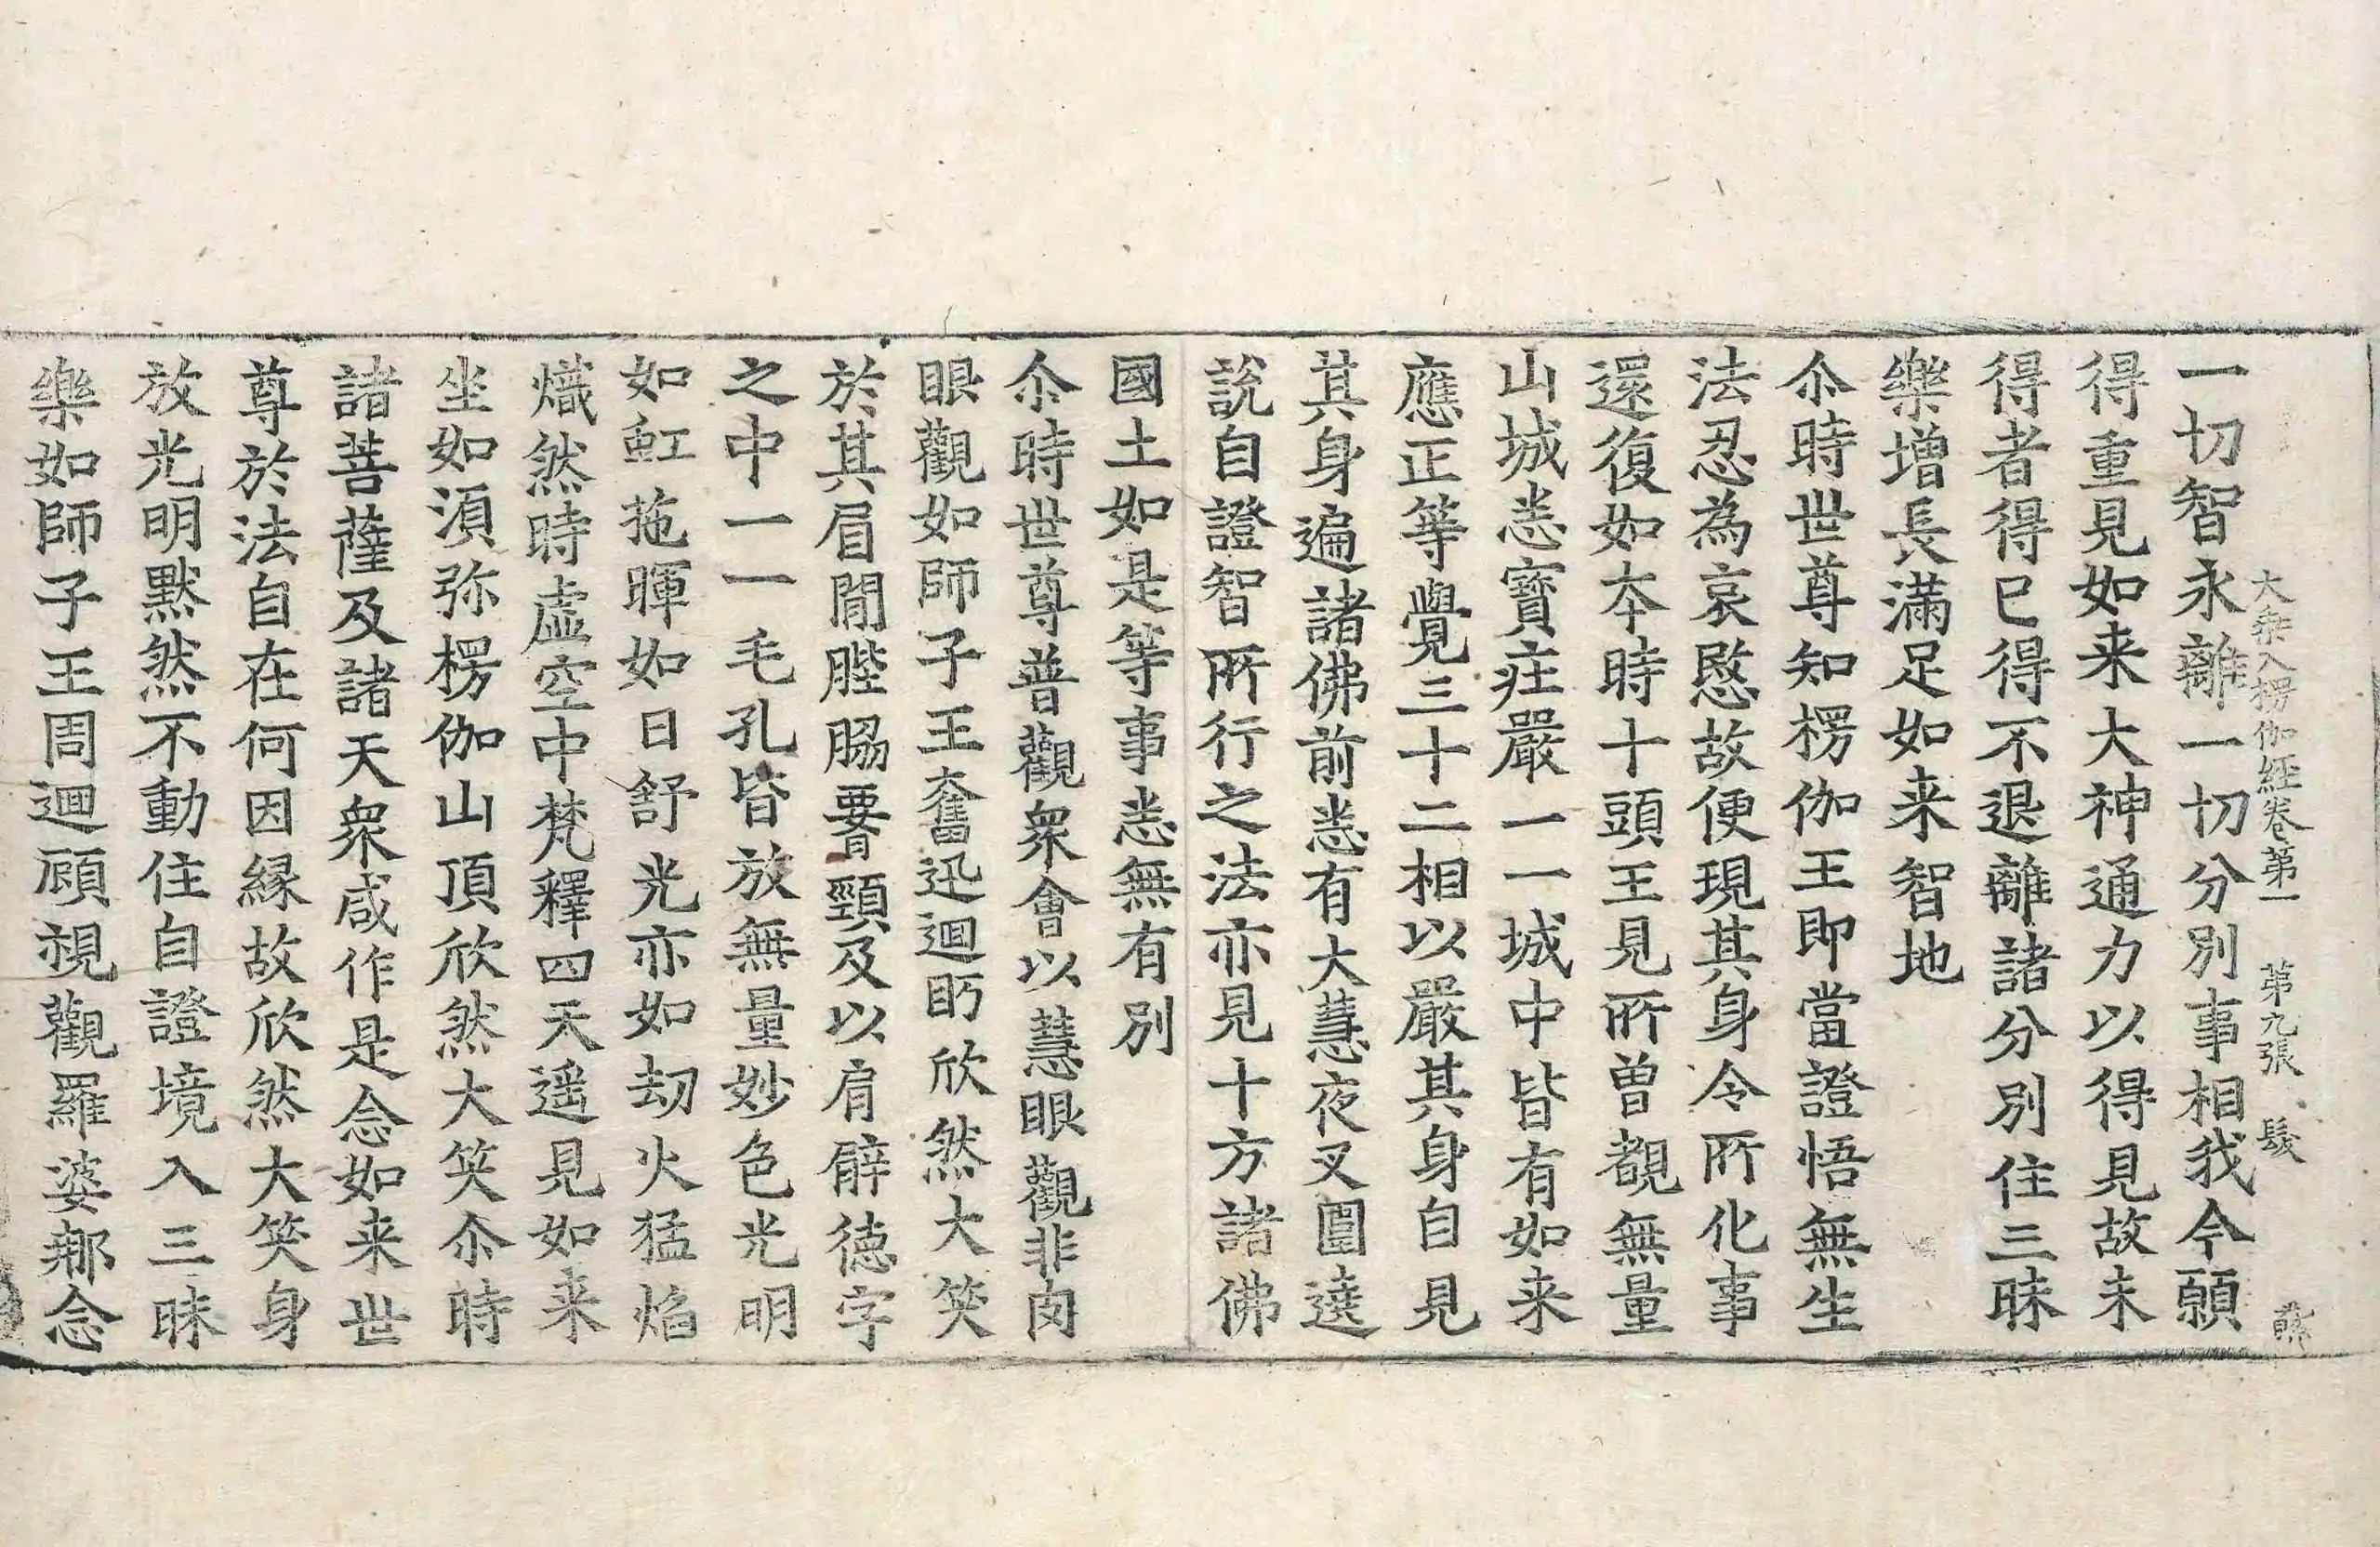 大乗入楞伽経卷第一 第九張 髮
一切智永離一切分別事相我今願
得重見如来大神通力以得見故未
得者得已得不退離諸分別住三昧
樂增長滿足如来智地
尒時世尊知楞伽王即當證悟無生
法忍為哀愍故便現其身令所化事
還復如夲時十頭王見所曾覩無量
山城悉寳莊嚴一一城中皆有如来
應正等覺三十二相以嚴其身自見
其身遍諸佛前悉有大慧夜叉圍遶
說自證智所行之法亦見十方諸佛
國土如是等事悉無有別
尒時世尊普觀衆會以慧眼觀非肉
眼觀如師子王奮迅迴眄欣然大笑
於其眉間髀脇𦝫頸及以肩臂德字
之中一一毛孔皆放無量妙色光明
如虹拖暉如日舒光亦如劫火猛焰
熾然時虛空中梵釋四天遥見如来
坐如湏弥楞伽山頂欣然大笑尒時
諸菩薩及諸天衆咸作是念如来世
尊於法自在何因縁故欣然大笑身
放光明默然不動住自證境入三昧
樂如師子王周迴顧視觀羅婆那念